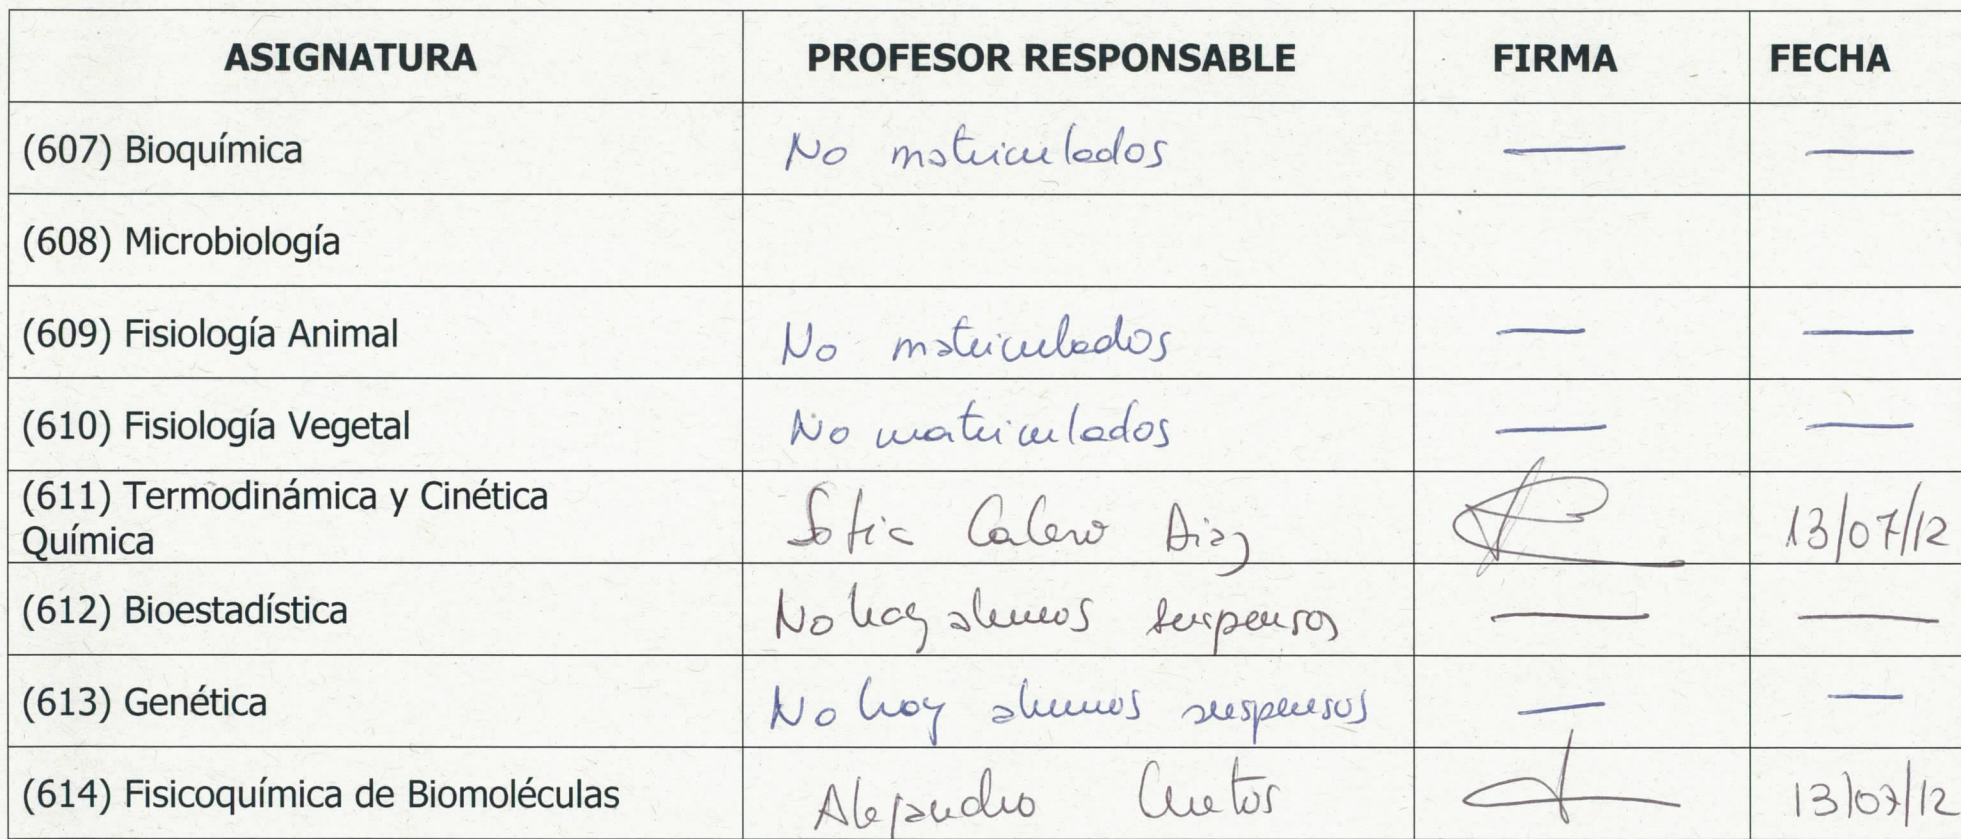 ASIGNATURA PROFESOR RESPONSABLE FIRMA FECHA
(607) Bioquímica No matriculados — —
(608) Microbiología
(609) Fisiología Animal No matriculados — —
(610) Fisiología Vegetal No matriculados — —
(611) Termodinámica y Cinética
Química Sofia Calero Diaz 13/07/12
(612) Bioestadística No hay alumnos suspensos — —
(613) Genética No hay alumnos suspensos — —
(614) Fisicoquímica de Biomoléculas Alejandro Cuetos 13/07/12